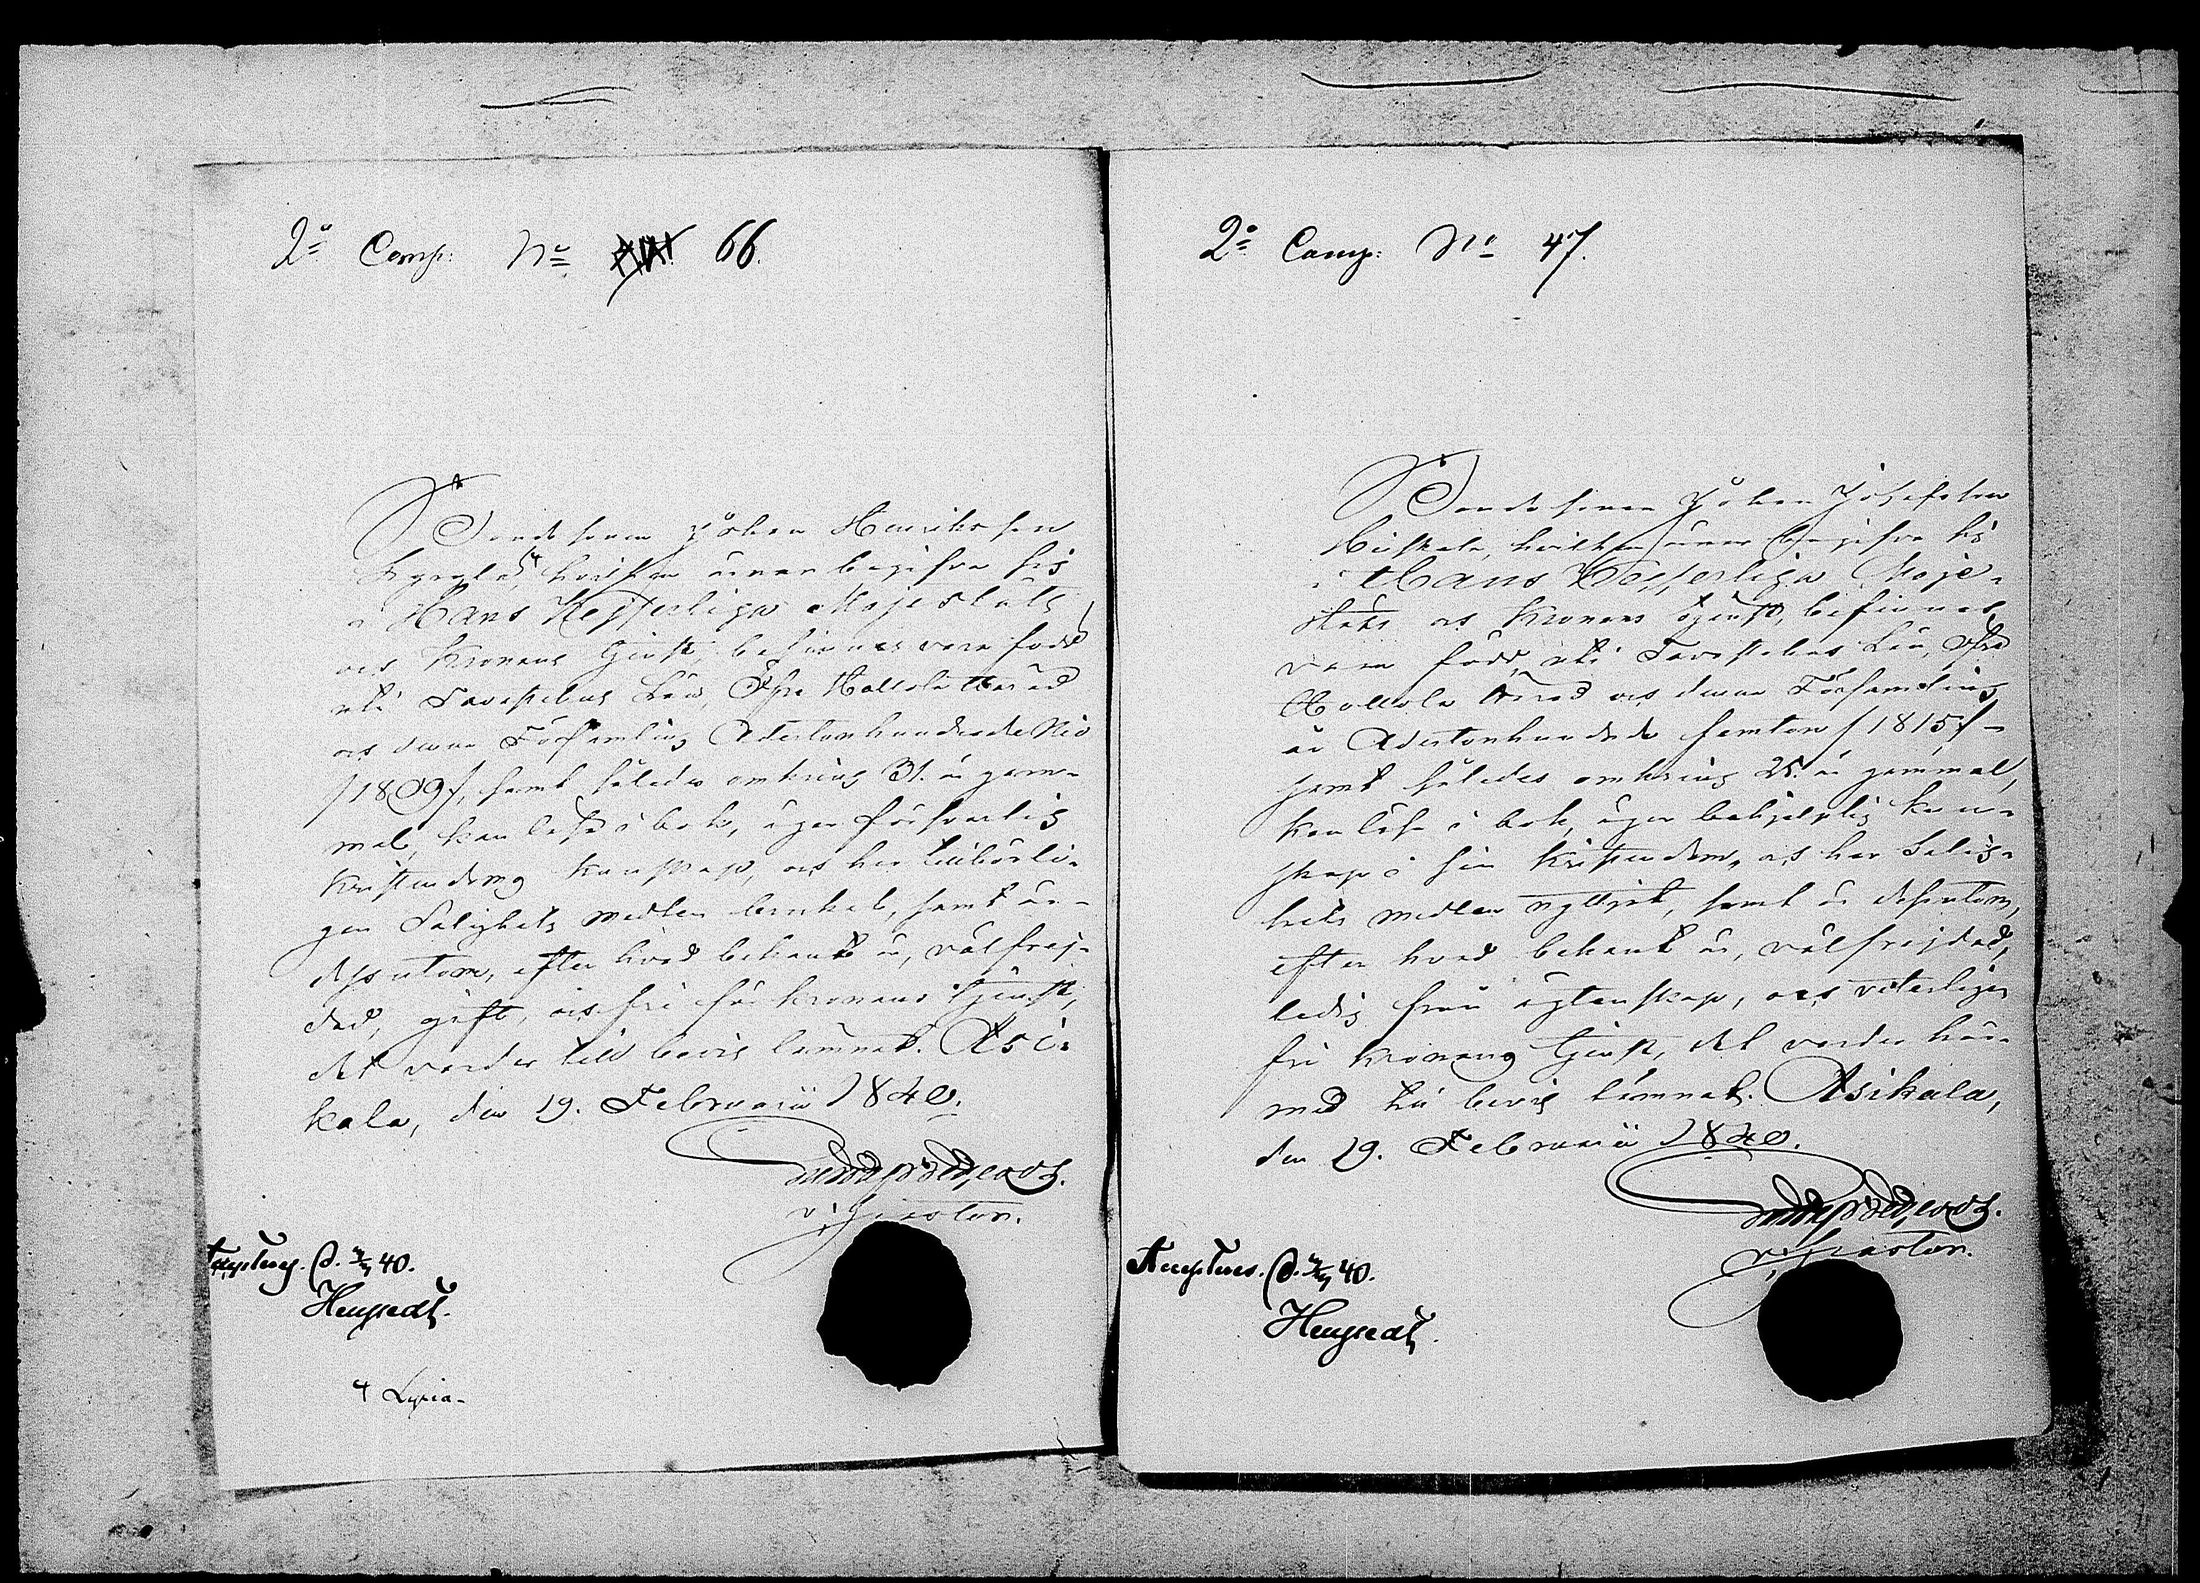 2:a Comp: No 66.
Bondesonen Johan Henriksson
hvilken ärnar begifva sig
i Hans Kejserliga Majestäts
och Kronans tjenst, befinnes vara född
uti Tavastehus Län, Öfre Hollola Härad
och denna Församling Adertonhundrade Nio
/1809/, samt således omkring 31. år gam-
mal, kan läsa i bok, äger försvarlig
Kristendoms kunskap, och har behörli-
gen Salighets medlen brukat, samt är
dessutom, efter hvad bekant är, välfrej-
dad, gift, och fri för Kronans tjenst,
det varder till bevis lemnat. Asi-
kala, den 19. Februarii 1840.
v. Pastor.
Accepteras. d. 40.
4 Lyria

2:a Comp: No 47.
Bondesonen Johan Josefsson
Heiskala, hvilken ärnar begifva sig
i Hans Kejserliga Maje-
stäts och Kronans tjenst, befinnes
vara född uti Tavastehus Län, Öfre
Hollola Härad och denna Församling
år Adertonhundrade femton /1815/
samt således omkring 25. år gammal,
kan läsa i bok, äger behjelplig kun-
skap i sin Kristendom, och har Salig-
hets medlen nyttjat, samt är dessutom,
efter hvad bekant är, välfrejdad,
ledig från ägtenskap, och veterligen
fri Kronans tjenst, det varder här-
med till bevis lemnat. Asikala,
den 19. Februarii 1840.
v. Pastor.
Accepteras. d. 40.